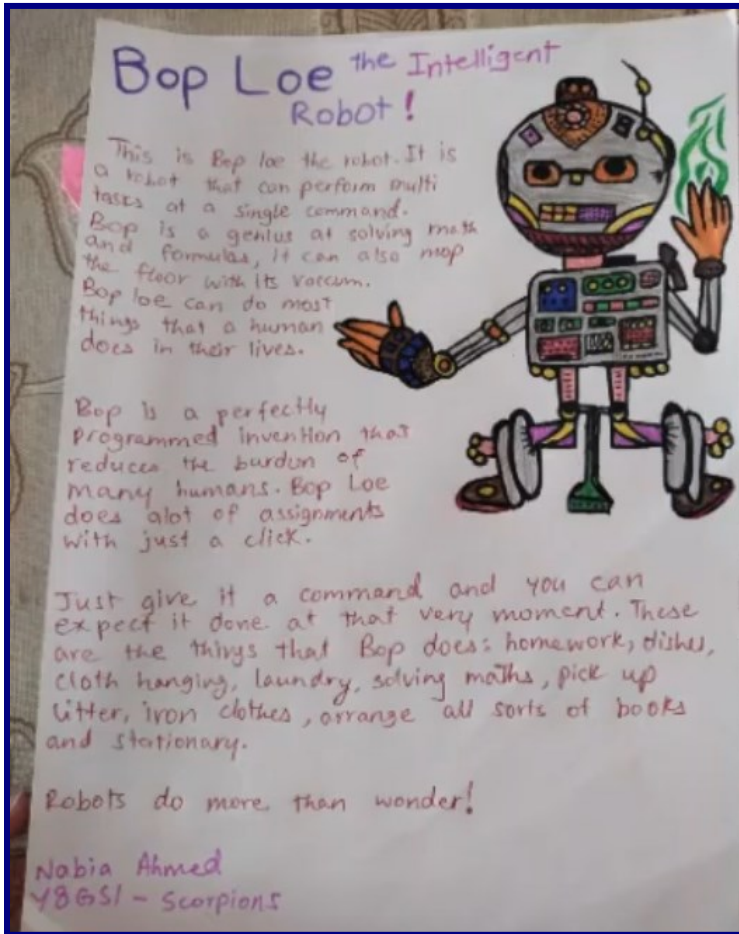 Bop Loe the Intelligent
Robot!
This is Bop loe the robot. It is
a robot that can perform multi
tasks at a single command.
Bop is a genius at solving math
and formulas, it can also mop
the floor with its vaccum.
Bop loe can do most
things that a human
does in their lives.
Bop is a perfectly
programmed invention that
reduces the burdun of
many humans. Bop Loe
does alot of assignments
with just a click.
Just give it a command and you can
expect it done at that very moment. These
are the things that Bop does: homework, dishes,
cloth hanging, laundry, solving maths, pick up
litter, iron clothes, arrange all sorts of books
and stationary.
Robots do more than wonder!
Nabia Ahmed
Y8GS1 - Scorpions